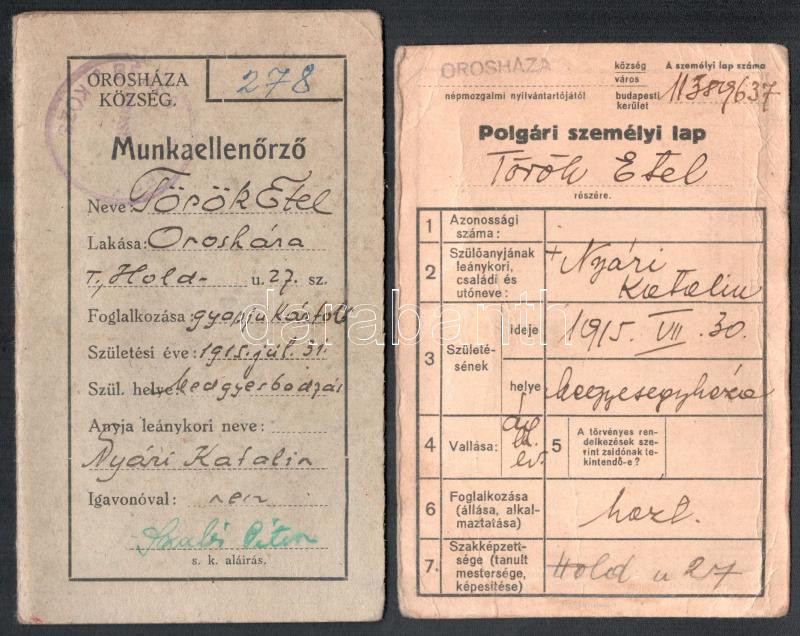 OROSHÁZA
KÖZSÉG.
278
Munkaellenőrző
Neve: Török Etel
Lakása: Orosháza
T., Hold- u. 27. sz.
Foglalkozása: gyapju kártoló
Születési éve: 1915. júl. 31.
Szül. helye: Medgyesbodzás
Anyja leánykori neve:
Nyári Katalin
Igavonóval: nem
s. k. aláírás.
OROSHÁZA
község
város
budapesti
kerület
A személyi lap száma
népmozgalmi nyilvántartójától
Polgári személyi lap
Török Etel
részére.
1 Azonossági
száma:
2 Szülőanyjának
leánykori,
családi és
utóneve:
+ Nyári
Katalin
3 Születé-
sének
ideje 1915. VII. 30.
helye Medgyesegyháza
4 Vallása: ág.
ev.
5 A törvényes ren-
delkezések sze-
rint zsidónak te-
kintendő-e?
6 Foglalkozása
(állása, alkal-
maztatása)
hazt.
7. Szakképzett-
sége (tanult
mestersége,
képesítése)
Hold u 27
darabanth